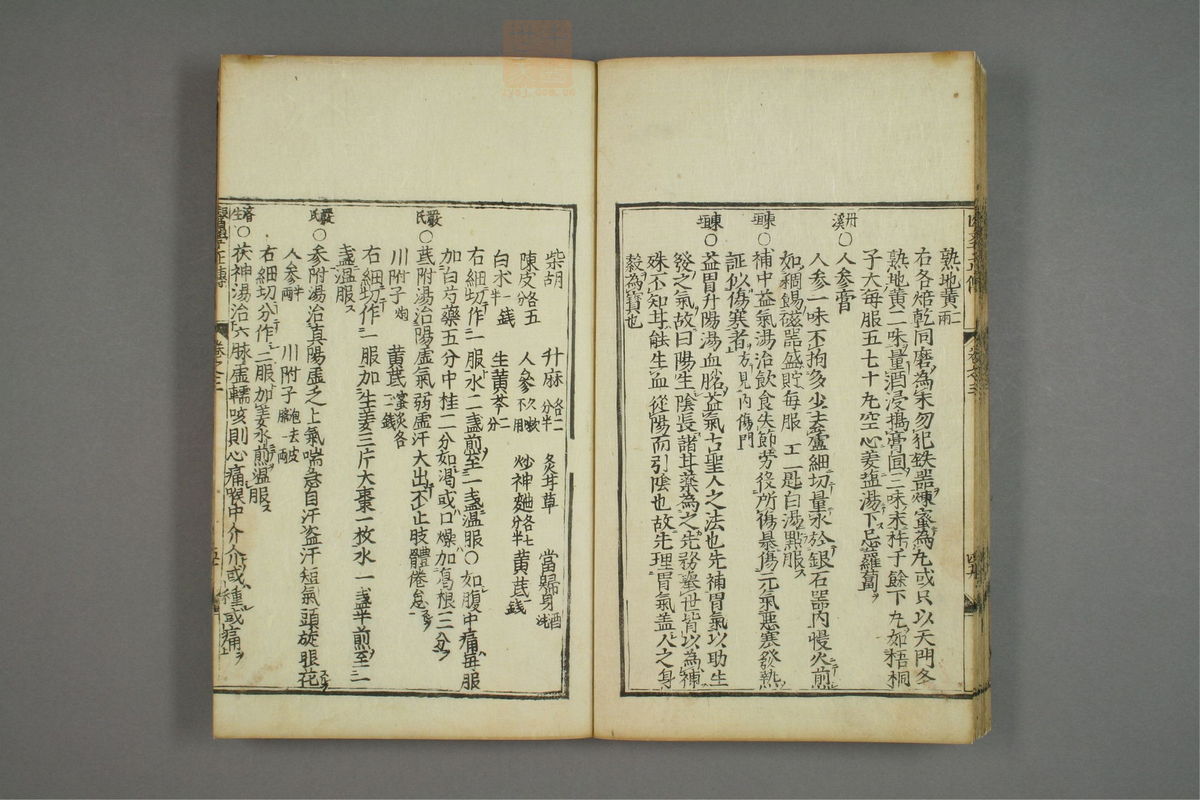 熟地黄二兩
右各焙乾同磨為末勿犯鉄器煉蜜為丸或只以天門冬
熟地黄二味量酒浸搗膏囯三味末杵子餘下丸如梧桐
子大每服五七十丸空心姜塩湯下忌蘿蔔
丹溪○人参膏
人参一味不拘多少去蘆細切量水於銀石器内慢火煎
如稠錫磁器盛貯每服一二匙白湯點服
東垣○補中益氣湯治飲食失節勞役所傷暴傷元氣惡寒發熱
証似傷寒者方見内傷門
東垣○益胃升陽湯血脱益氣古聖人之法也先補胃氣以助生
發之氣故曰陽生陰長諸甘藥為之先務舉世皆以為補
殊不知甘能生血從陽而引陰也故先理胃氣盖人之身
穀為寶也
柴胡 升麻各二分半 炙甘草 當歸身酒洗
陳皮各五分 人參不久嗽用 炒神麯各七分半 黄茋一錢
白朮一錢半 生黄芩二分
右細切作一服水二盞煎至一盞温服○如腹中痛每服
加白芍藥五分中桂二分如渴或口燥加葛根三分
嚴氏○茋附湯治陽虚氣弱虚汗大出不止肢體倦怠
川附子炮 黄茋蜜炙各二錢
右細切作一服加生姜三斤大棗一枚水一盞半煎至一
盞温服
嚴氏○参附湯治真陽虚乏上氣喘急自汗盗汗短氣頭旋眼花
人参半兩 川附子炮去皮臍一兩
右細切分作三服加姜水煎温服
濟生○茯神湯治六脉虚輭咳則心痛喉中介介或種或痛